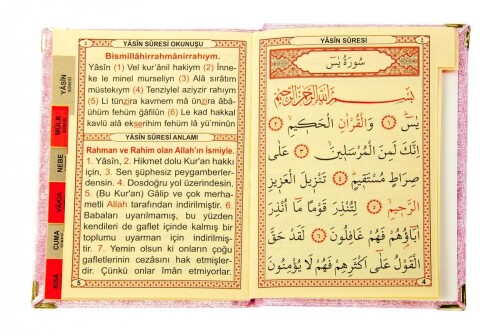 YÂSİN SÛRESİ OKUNUŞU
Bismillâhirrahmânirrahıym.
Yâsîn (1) Vel kur'ânil hakiym (2) İnne-
ke le minel murseliyn (3) Alâ sırâtım
müstekıym (4) Tenziylel aziyzir rahıym
(5) Li tünzira kavmem mâ ünzira âbâ-
ühüm fehüm ğâfilûn (6) Le kad hakkal
kavlü alâ ekserihim fehüm lâ yü'minûn
YÂSİN SÛRESİ ANLAMI
Rahman ve Rahim olan Allah'ın İsmiyle.
1. Yâsîn, 2. Hikmet dolu Kur'an hakkı
için, 3. Sen şüphesiz peygamberler-
densin. 4. Dosdoğru yol üzerindesin.
5. (Bu Kur'an) Gâlip ve çok merha-
metli Allah tarafından indirilmiştir. 6.
Babaları uyarılmamış, bu yüzden
kendileri de gaflet içinde kalmış bir
toplumu uyarman için indirilmiş-
tir. 7. Yemin olsun ki onların çoğu
gafletlerinin cezâsını hak etmişler-
dir. Çünkü onlar îman etmiyorlar.
5
YÂSİN
SÛRESİ
MÜLK
NEBE
VÂKIA
CUMA
KISA
YÂSİN SÛRESİ
سُورَةُ يٰسٓ
بِسْمِ اللّٰهِ الرَّحْمٰنِ الرَّحِيمِ
يٰسٓ ﴿١﴾ وَالْقُرْاٰنِ الْحَكِيمِ ﴿٢﴾
اِنَّكَ لَمِنَ الْمُرْسَلِينَ ﴿٣﴾ عَلٰى
صِرَاطٍ مُسْتَقِيمٍ ﴿٤﴾ تَنْزِيلَ الْعَزِيزِ
الرَّحِيمِ ﴿٥﴾ لِتُنْذِرَ قَوْمًا مَٓا اُنْذِرَ
اٰبَٓاؤُهُمْ فَهُمْ غَافِلُونَ ﴿٦﴾ لَقَدْ حَقَّ
الْقَوْلُ عَلٰٓى اَكْثَرِهِمْ فَهُمْ لَا يُؤْمِنُونَ
4